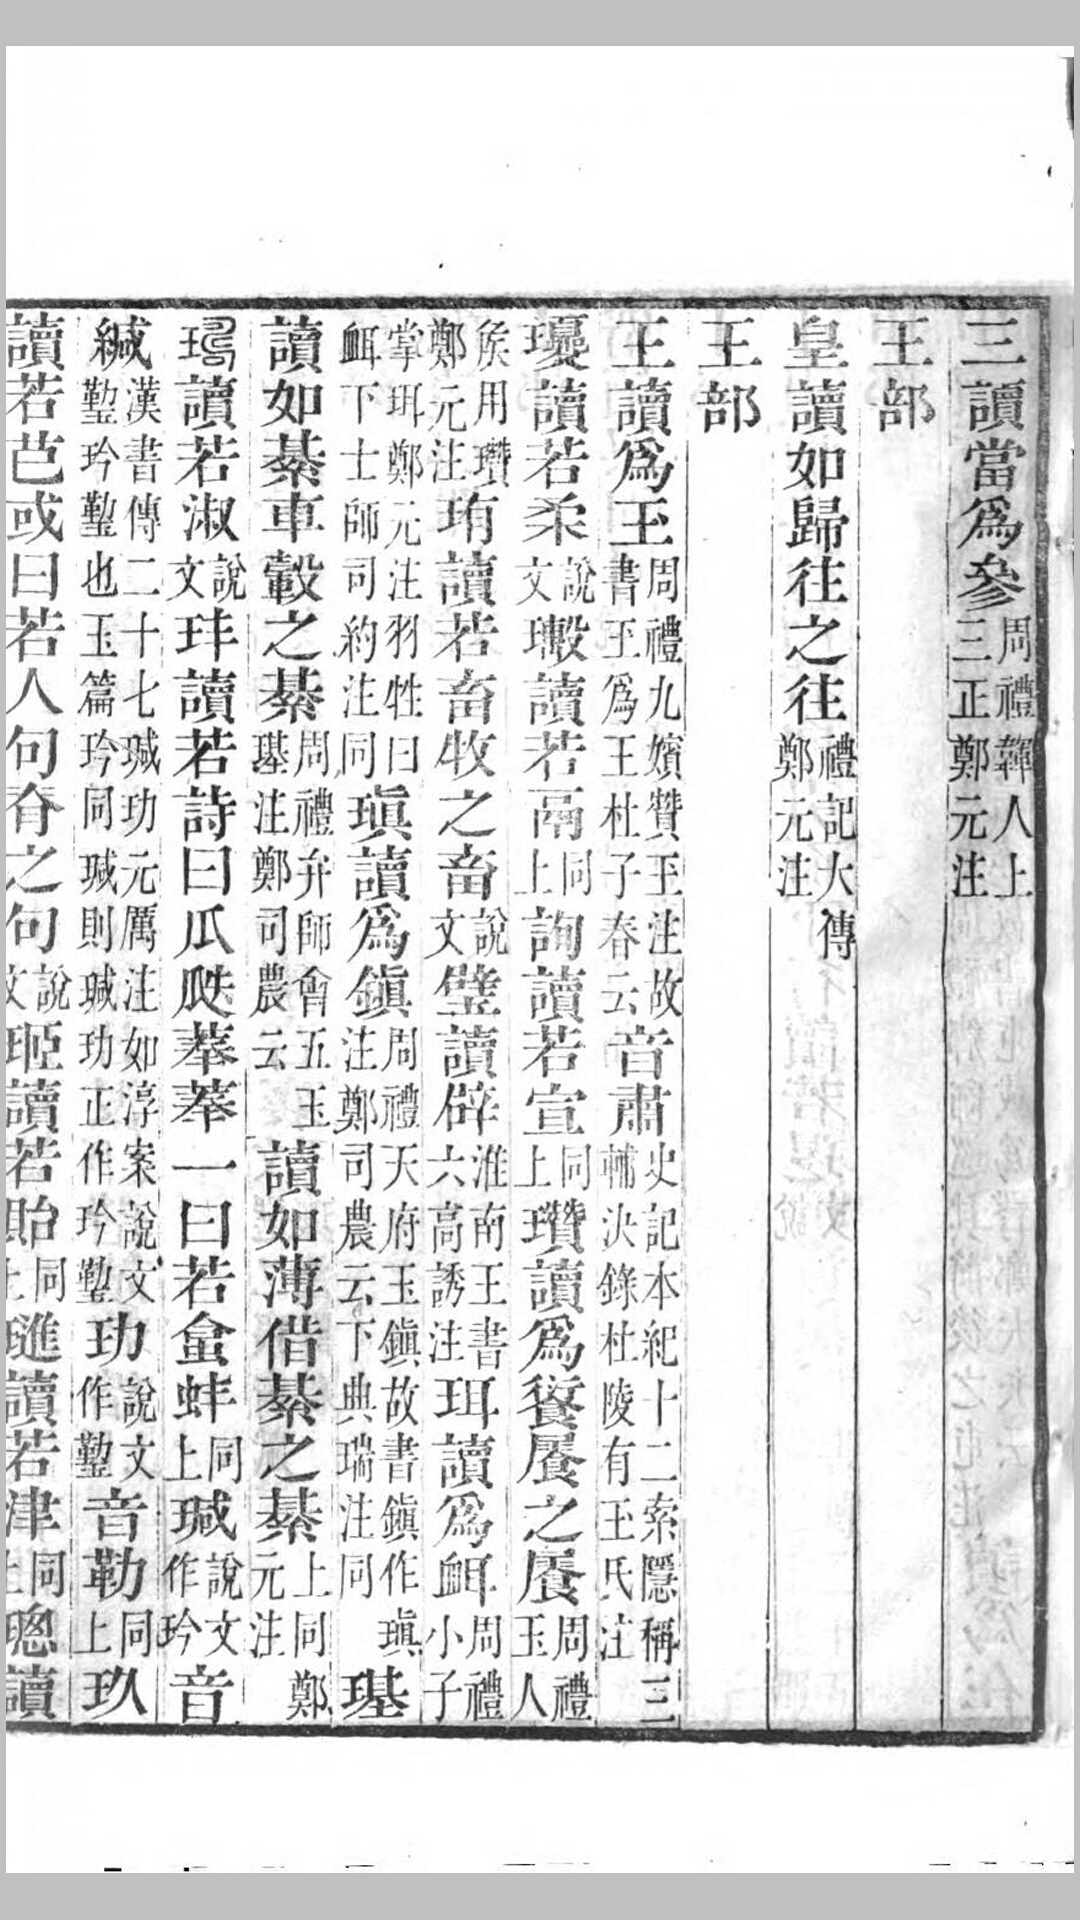 三讀當爲參周禮韗人上三正鄭元注
王部
皇讀如歸往之往禮記大傳鄭元注
王部
王讀爲玉周禮九嬪贊玉注故書玉爲王杜子春云音肅史記本紀十二索隱稱三輔決錄杜陵有玉氏注
瓇讀若柔說文讀若鬲同上詢讀若宣同上瓚讀爲之周禮玉人
矦用瓚鄭元注珛讀若畜牧之畜說文璧讀僻淮南王書六高誘注珥讀爲衈周禮小子
掌珥鄭元注羽牲曰衈下士師司約注同瑱讀爲鎭周禮天府玉鎭故書鎭作瑱注鄭司農云下典瑞注同璂
讀如綦車轂之綦周禮弁師會五玉璂注鄭司農云讀如薄借綦之綦上同鄭元注
讀若淑說文玤讀若詩曰瓜瓞菶菶一曰若蚌同上瑊說文作玪音
緘漢書傳二十七瑊功元厲注如淳案說文玪也玉篇玪同瑊則瑊功正作玪功說文作音勒同上玖
讀若芑或曰若人句脊之句說文讀若貽同上璡讀若津同上璁讀